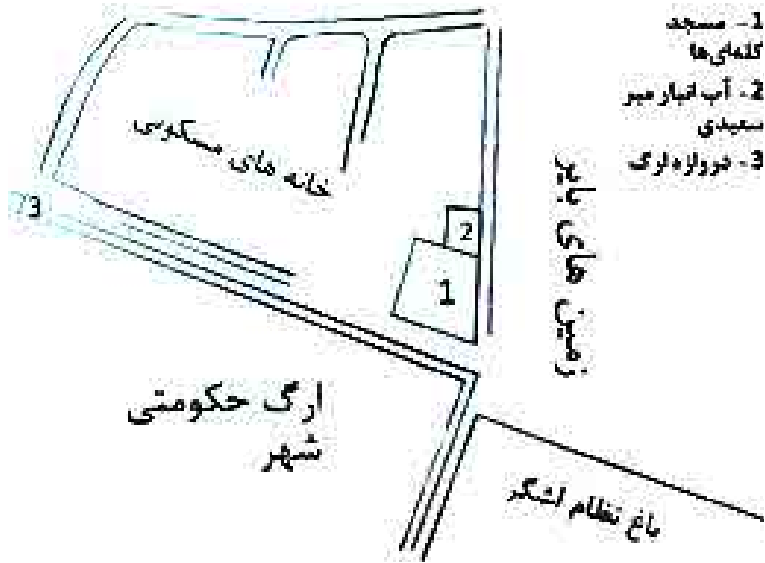 1- مسجد
کله‌ای‌ها
2- آب انبار میر
سعیدی
3- دروازه ارگ
خانه های مسکونی
زمین های بایر
3
2
1
ارگ حکومتی
شهر
باغ نظام لشگر